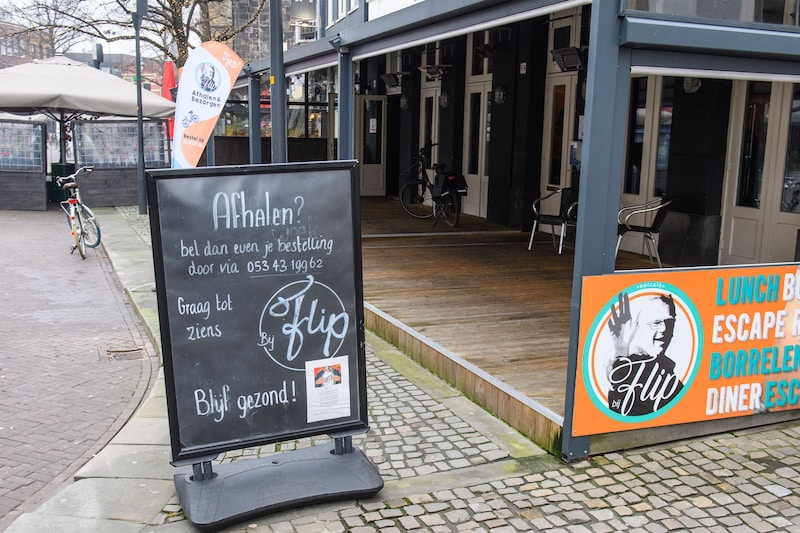 Afhalen?
bel dan even je bestelling
door via 053 43 199 62
Graag tot
ziens
Bij
Flip
Blijf gezond!
Afhalen &
Bezorgen
bestel op
eetcafé
bij Flip
LUNCH
ESCAPE
BORRELEN
DINER ESC